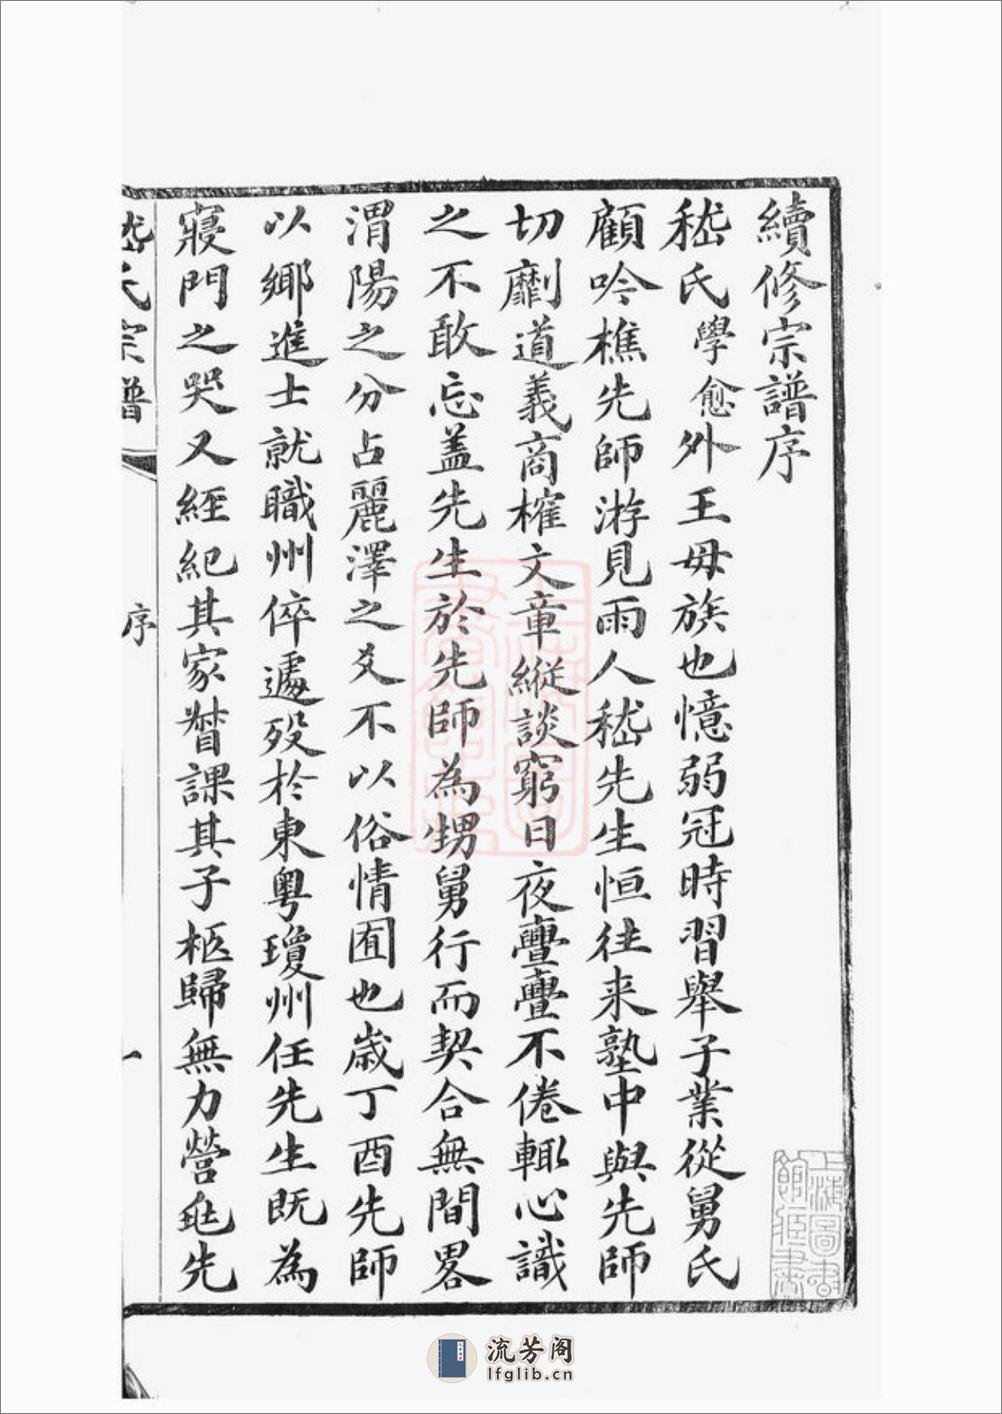 續修宗譜序
嵇氏學愈外王母族也憶弱冠時習舉子業從舅氏
顧吟樵先師游見雨人嵇先生恒往来塾中與先師
切劘道義商榷文章縱談窮日夜亹亹不倦輒心識
之不敢忘盖先生於先師為甥舅行而契合無間畧
渭陽之分占麗澤之爻不以俗情囿也歲丁酉先師
以鄉進士就職州倅遽歿於東粤瓊州任先生既為
寢門之哭又經紀其家督課其子柩歸無力營兆先
嵇氏宗譜
序
一
上海圖書館臧書
上海圖書館臧書
流芳阁
lfglib.cn